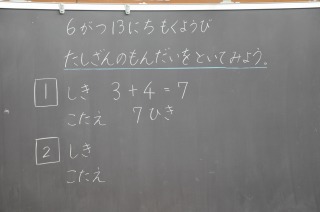 6がつ13にち もくようび
たしざんのもんだいをといてみよう。
1 しき 3+4=7
こたえ 7ひき
2 しき
こたえ